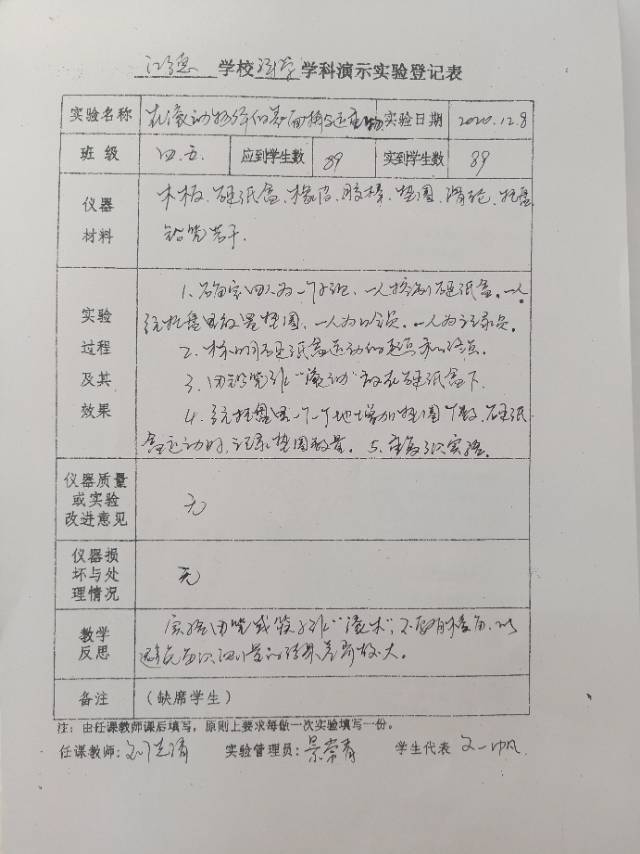 学校科学学科演示实验登记表
实验名称 实验日期 2020.12.8
班级 四.五. 应到学生数 89 实到学生数 89
仪器 木板、硬纸盒、橡皮、胶棒、垫圈、滑轮、托盘
材料 铅笔若干.
实验 1.确定四人为一个小组、一人控制硬纸盒.一人
托盘里放置垫圈、一人为公员.一人为记录员.
过程 2.标明硬纸盒运动的起点和终点.
及其 3.用铅笔作“滚动”放在硬纸盒下.
效果 4.托盘里一个一个地增加垫圈个数,硬纸
盒运动时,记录垫圈数量. 5.重复3次实验.
仪器质量
或实验
改进意见 无
仪器损
坏与处
理情况 无
教学 实验用笔或筷子作“滚木”,不
反思 避免每次测量的结果差异较大。
备注 (缺席学生)
注:由任课教师课后填写,原则上要求每做一次实验填写一份。
任课教师: 实验管理员: 学生代表